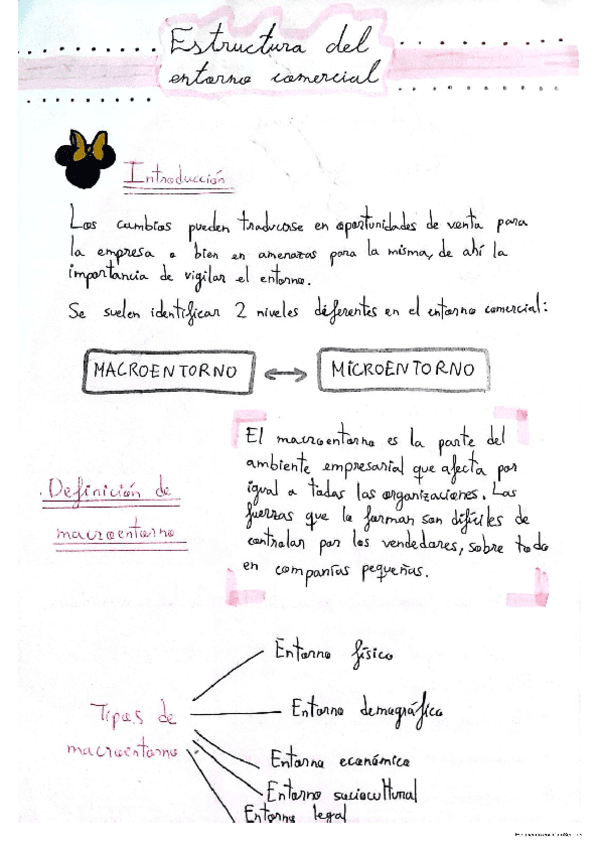 Estructura del
entorno comercial
Introducción
Los cambios pueden traducirse en oportunidades de venta para
la empresa o bien en amenazas para la misma, de ahí la
importancia de vigilar el entorno.
Se suelen identificar 2 niveles diferentes en el entorno comercial:
MACROENTORNO
MICROENTORNO
Definición de
macroentorno
El macroentorno es la parte del
ambiente empresarial que afecta por
igual a todas las organizaciones. Las
fuerzas que lo forman son difíciles de
controlar por los vendedores, sobre todo
en compañías pequeñas.
Tipos de
macroentorno
Entorno físico
Entorno demográfico
Entorno económico
Entorno sociocultural
Entorno legal